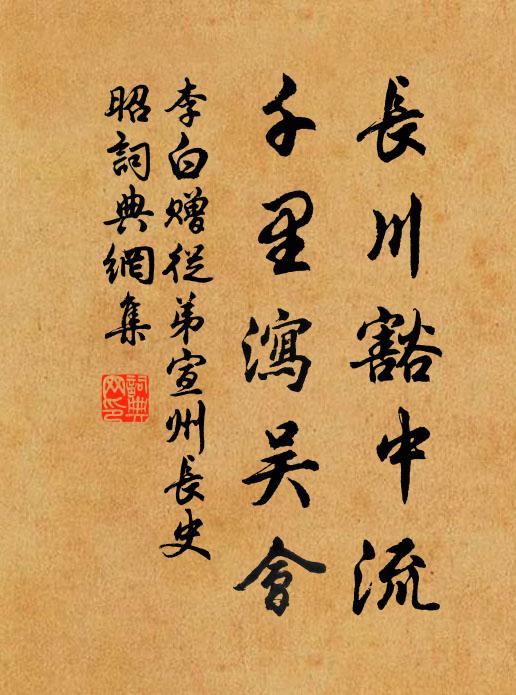 長川豁中流
千里瀉吴會
李白贈從弟宣州長史
昭詞典網集
詞典
网印